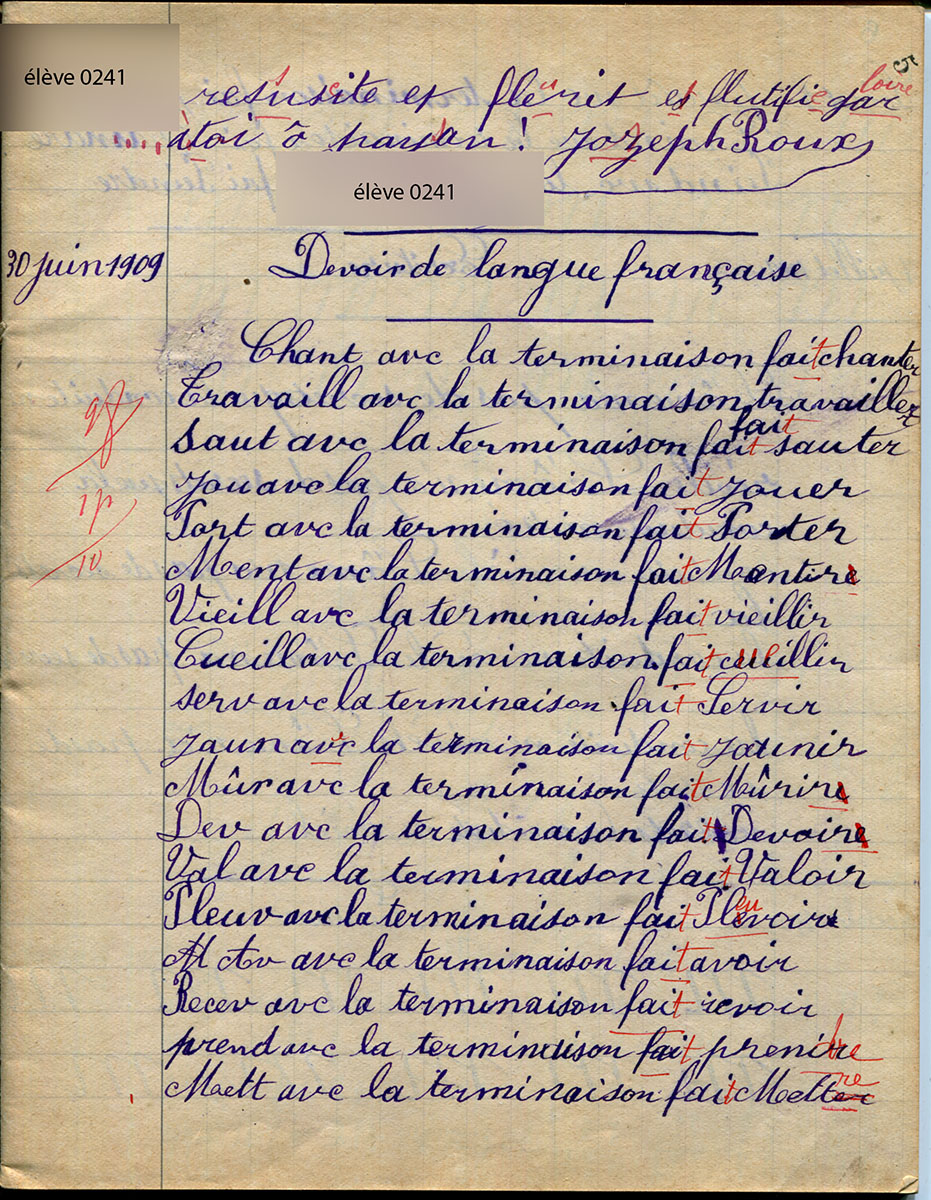 élève 0241
5
resusite et flerit et flutifi gar
loire
à toi ô paysan! Jozeph Roux
élève 0241
30 juin 1909
Devoir de langue française
Chant avc la terminaison fait chanter
Travaill avc la terminaison travailler
fait
Saut avc la terminaison fait sauter
9f
Jou avc la terminaison fait jouer
1p
Port avc la terminaison fait Porter
10
Ment avc la terminaison fait Mentire
Vieill avc la terminaison fait vieillir
Cueill avc la terminaison fait cueillir
serv avc la terminaison fait Servir
Jaun avc la terminaison fait jaunir
Mûr avc la terminaison fait Mûrire
Dev avc la terminaison fait Devoire
Val avc la terminaison fait Valoir
eu
Pleuv avc la terminaison fait Plevoire
Av avc la terminaison fait avoir
Recev avc la terminaison fait revoir
prend avc la terminaison fait prenire
re
Mett avc la terminaison fait Metter